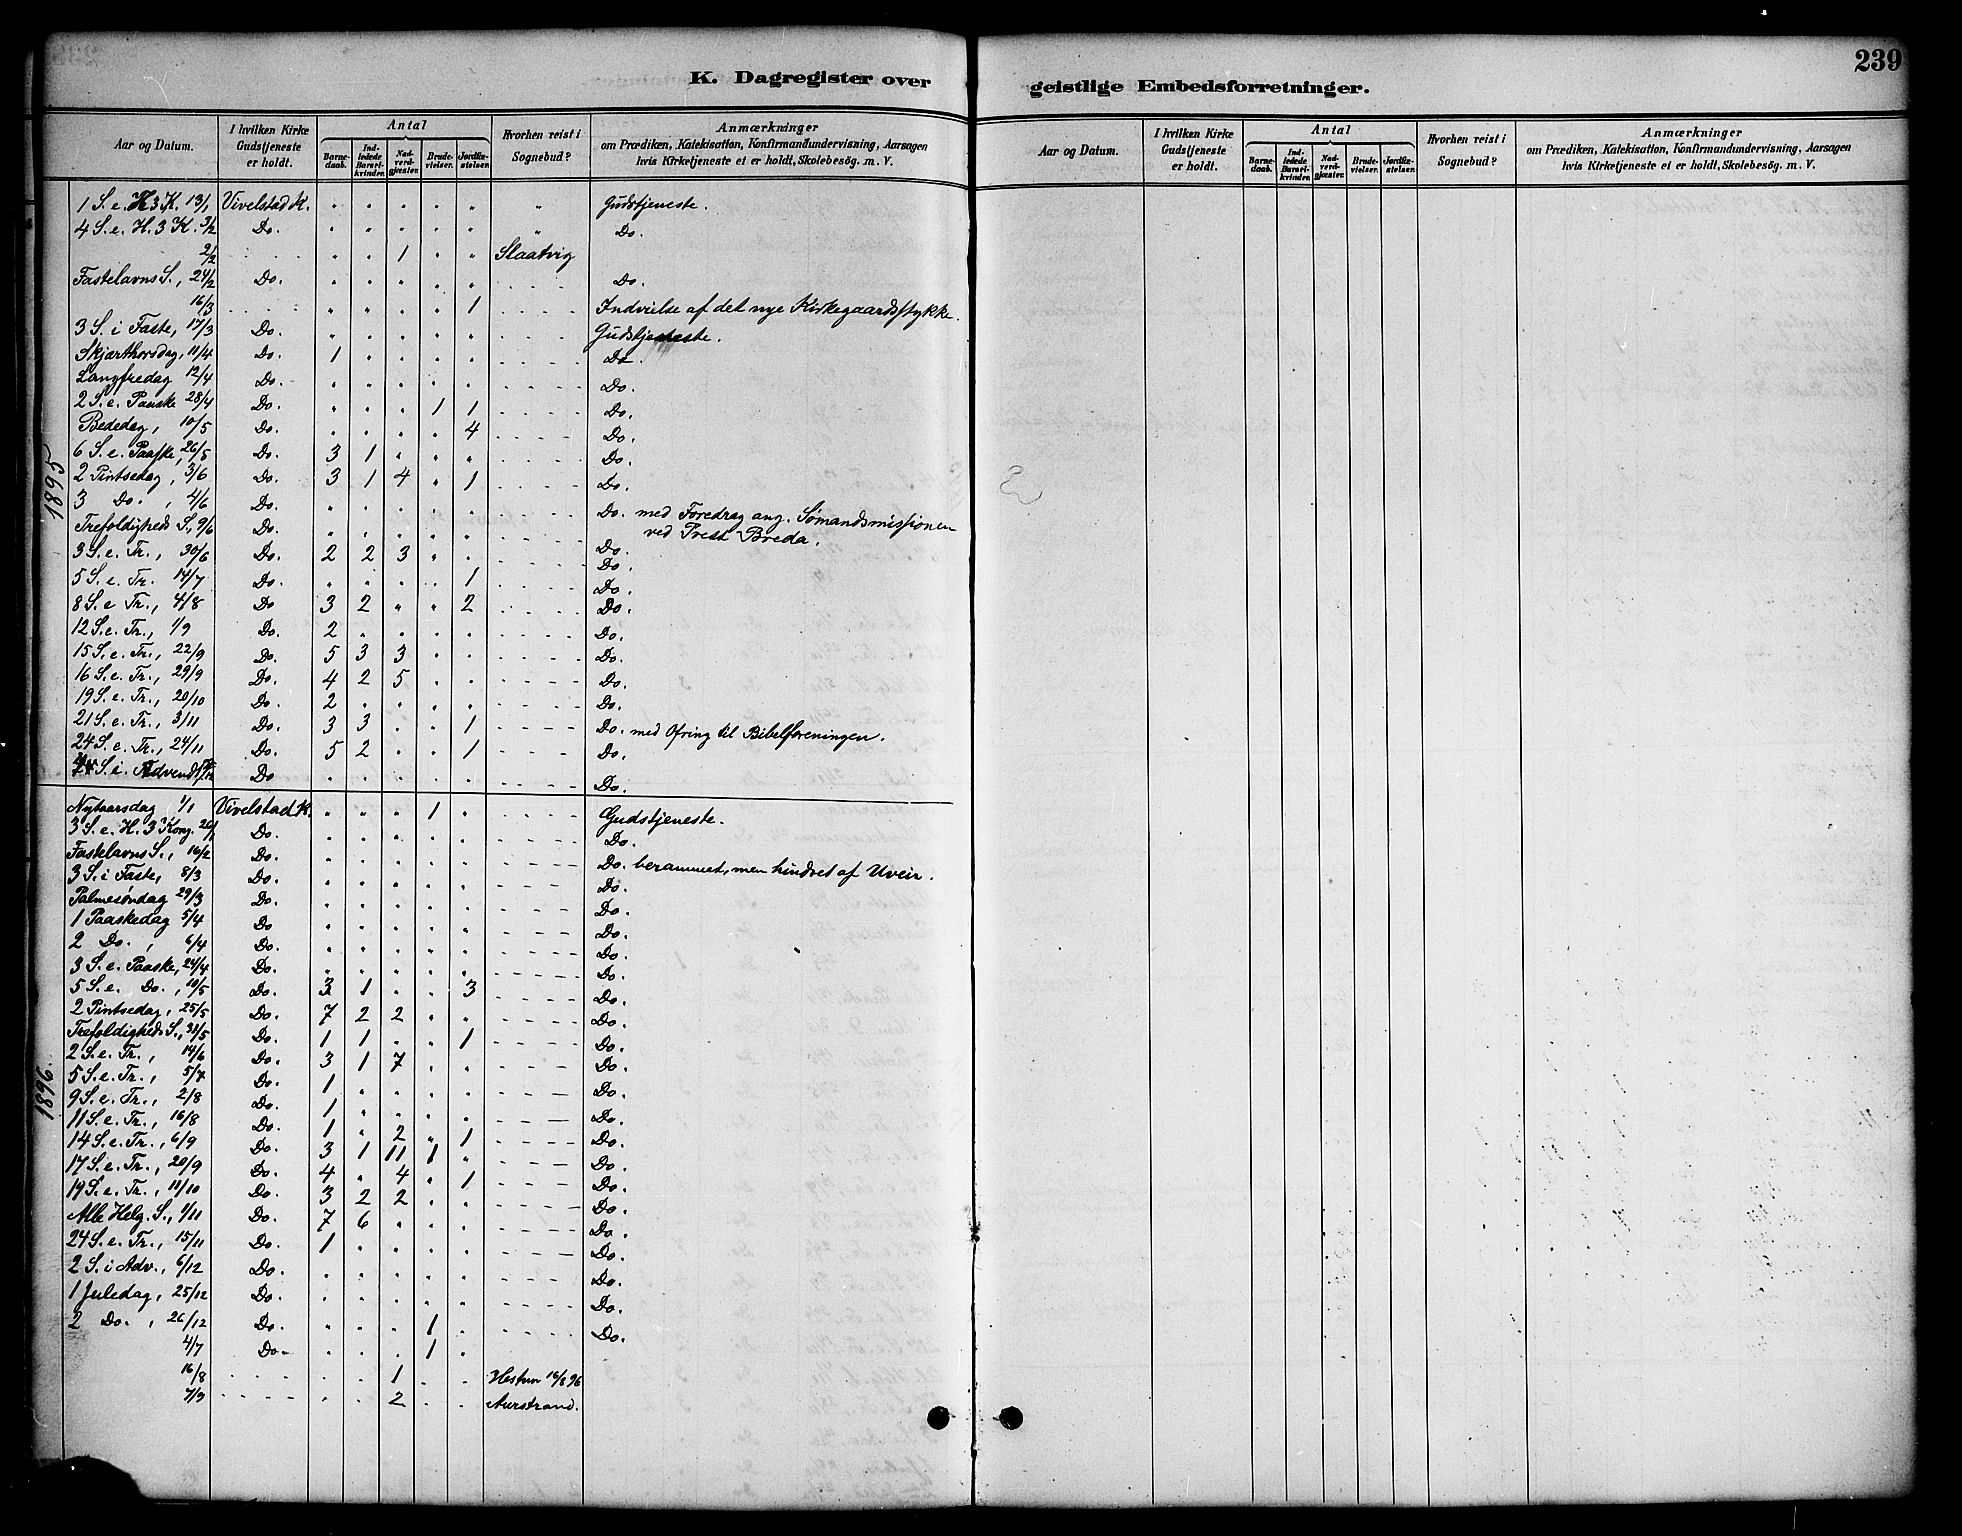 K. Dagregister over geistlige Embedsforretninger.
239
Aar og Datum.
I hvilken Kirke Gudstjeneste er holdt.
Antal
Barnedaab.
Indledede Barselkvinder.
Nadverdgjæster.
Brudevielser.
Jordfæstelser.
Hvorhen reist i Sognebud?
Anmærkninger
om Prædiken, Katekisation, Konfirmandundervisning, Aarsagen
hvis Kirketjeneste ei er holdt, Skolebesøg. m. V.
Aar og Datum.
I hvilken Kirke Gudstjeneste er holdt.
Antal
Barnedaab.
Indledede Barselkvinder.
Nadverdgjæster.
Brudevielser.
Jordfæstelser.
Hvorhen reist i Sognebud?
Anmærkninger
om Prædiken, Katekisation, Konfirmandundervisning, Aarsagen
hvis Kirketjeneste ei er holdt, Skolebesøg. m. V.
1895
1 S. e. H 3 K. 13/1 Vivelstad K. " " " " " " Gudstjeneste.
4 S. e. H. 3 K. 3/2 Do. " " " " " " Do.
2/2 " " 1 " " Slaatvig
Fastelavns S., 24/2 Do. " " " " " Do.
16/3 " " " " 1 Indvielse af det nye Kirkegaardsstykke.
3 S. i Faste, 17/3 Do. " " " " " Gudstjeneste.
Skjærthorsdag, 11/4 Do. 1 " " " " Do.
Langfredag 12/4 Do. " " " " " Do.
2 S. e. Paaske 28/4 Do. " " " 1 1 Do.
Bededag, 10/5 Do. " " " " 4 Do.
6 S. e. Paaske, 26/5 Do. 3 1 " " " Do.
2 Pintsedag, 3/6 Do. 3 1 4 " 1 Do.
3 Do., 4/6 Do. " " " " " Do. med Foredrag ang. Sømandsmissionen
ved Prest Breda.
Trefoldigheds S., 9/6 Do. " " " " " Do.
3 S. e. Tr., 30/6 Do. 2 2 3 " " Do.
5 S. e. Tr. 14/7 Do. " " " " 1 Do.
8 S. e Tr., 4/8 Do 3 2 " " 2 Do.
12 S. e. Tr., 1/9 Do. 2 " " " " Do.
15 S. e. Tr., 22/9 Do. 5 3 3 " " Do.
16 S. e. Tr., 29/9 Do. 4 2 5 " " Do.
19 S. e. Tr., 20/10 Do. 2 " " " " Do.
21 S. e. Tr., 3/11 Do. 3 3 " " 1 Do. med Ofring til Bibelforeningen.
24 S. e. Tr., 24/11 Do. 5 2 " " 1 Do.
S. i Advend Do " " " " " Do.
1896.
Nytaarsdag 1/1 Vivelstad K. " " " 1 " Gudstjeneste.
3 S. e. H. 3 Kong. 26/1 Do. " " " " " Do.
Fastelavns S., 16/2 Do. " " " " " Do. berammet, men hindret af Uveir.
3 S. i Faste, 8/3 Do. " " " " " Do.
Palmesøndag 29/3 Do. " " " " " Do.
1 Paaskedag 5/4 Do " " " " " Do.
2 Do., 6/4 Do. " " " " " Do.
3 S. e. Paaske, 24/4 Do. " " " " " Do.
5 S. e. Do., 10/5 Do. 3 1 " " 3 Do.
2 Pintsedag, 25/5 Do. 7 2 2 " " Do.
Trefoldigheds S., 31/5 Do. 1 1 " " 1 Do.
2 S. e. Tr., 14/6 Do. 3 1 7 " " Do.
5 S. e. Tr., 5/7 Do. 1 " " " " Do.
9 S. e. Tr., 2/8 Do. 1 " " " " Do.
11 S. e. Tr., 16/8 Do. 1 " 2 " 1 Do.
14 S. e. Tr., 6/9 Do. 3 1 11 1 " Do.
17 S. e. Tr., 20/9 Do. 4 " 4 " 1 Do.
19 S. e. Tr., 11/10 Do. 3 2 2 " " Do.
Alle Helg. S., 1/11 Do. 7 6 " " " Do.
24 S. e. Tr., 15/11 Do. 1 " " " " Do.
2 S. i Adv., 6/12 Do. " " " " " Do.
1 Juledag, 25/12 Do. " " " " " Do.
2 Do., 26/12 Do. " " " 1 " Do.
4/7 Do. " " " 1 "
16/8 " " 1 " " Hestun 16/8 96
7/9 " " 2 " " Aurstrand.